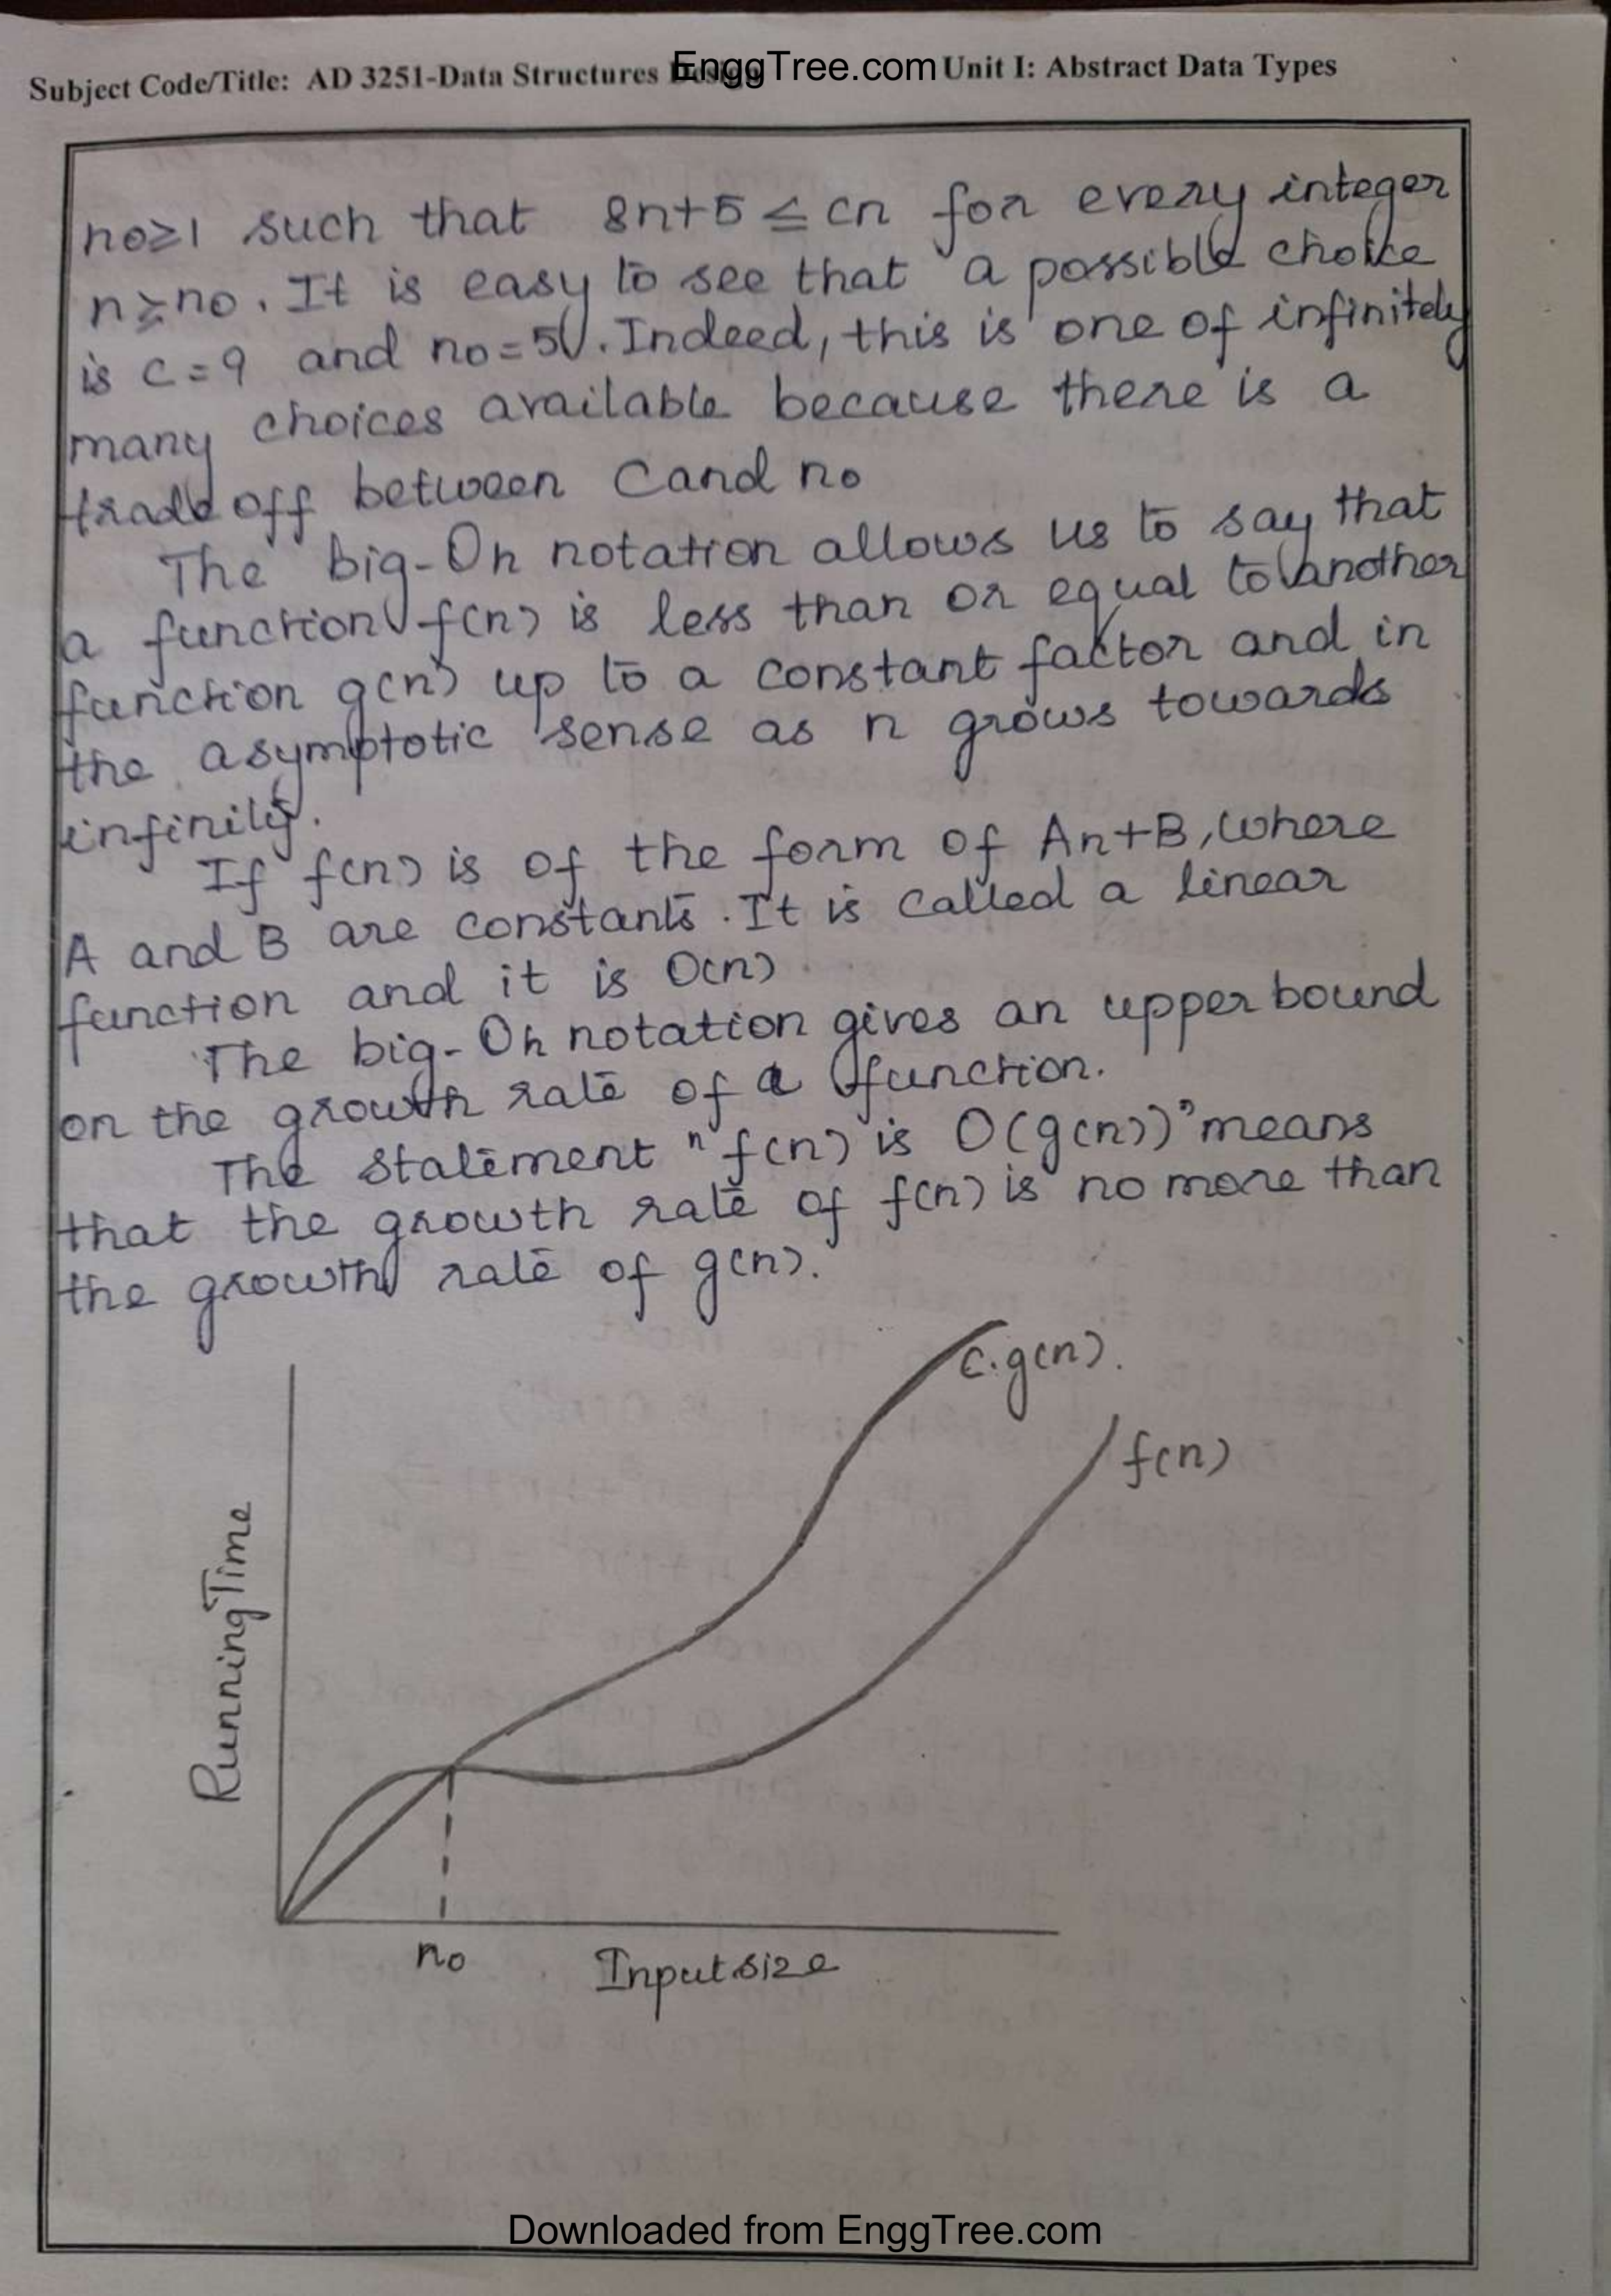 EnggTree.com
Subject Code/Title: AD 3251-Data Structures Design Unit I: Abstract Data Types
no≥1 such that 8n+5 ≤ cn for every integer
n≥no. It is easy to see that a possible choice
is c=9 and no=5. Indeed, this is one of infinitely
many choices available because there is a
trade off between C and no
The big-Oh notation allows us to say that
a function f(n) is less than or equal to another
function g(n) up to a constant factor and in
the asymptotic sense as n grows towards
infinity.
If f(n) is of the form of An+B, where
A and B are constants. It is called a linear
function and it is O(n)
The big-Oh notation gives an upper bound
on the growth rate of a function.
The statement "f(n) is O(g(n))" means
that the growth rate of f(n) is no more than
the growth rate of g(n).
c.g(n).
f(n)
Running Time
no
Input size
Downloaded from EnggTree.com